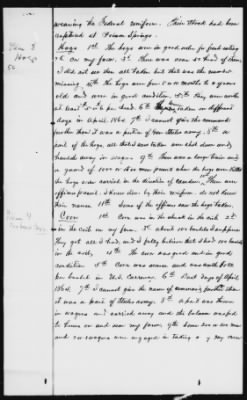 wearing the Federal uniform. Their Stock had been
captured at Poison Springs.
Item 3
Hogs
50
Hogs 1st The hogs were in good order for pork eating
& on my farm. 3d There was over 50 head of them
I did not see them all taken but that was the number
missing. 4th The hogs were from 6 months to 2 years
old and were in good condition. 5th They were worth
at least 5 each per head. 6th They were taken on different
days in April 1864. 7th I cannot give the commands
further than it was a portion of Gen Steeles army. 8th a
part of the hogs, all that I saw taken were shot down and
hauled away in wagons. 9th There was a large train and
a guard of 1000 or 1200 men present when the hogs were killed
the hogs were carried in the direction of Camden. There were
officers present. I knew them by their uniform do not know
their names. 11th Some of the officers saw the hogs taken.
Item 4
Corn 1st Corn was in the shuck in the crib 2d
in the crib on my farm. 3d about 100 bushels I suppose
They got all I had, and I fully believe that I had 100 bushels
in the crib. 4th The corn was good and in good
condition 5th Corn was scarce and was worth
per bushel in U.S. Currency. 6th First days of April
1864. 7th I cannot give the name of commands further than
it was a part of Steeles army. 8th A part was thrown
in wagons and carried away and the balance was fed
to horses on and near my farm. 9th Some 200 or 300 men
and 20 wagons were engaged in taking my corn